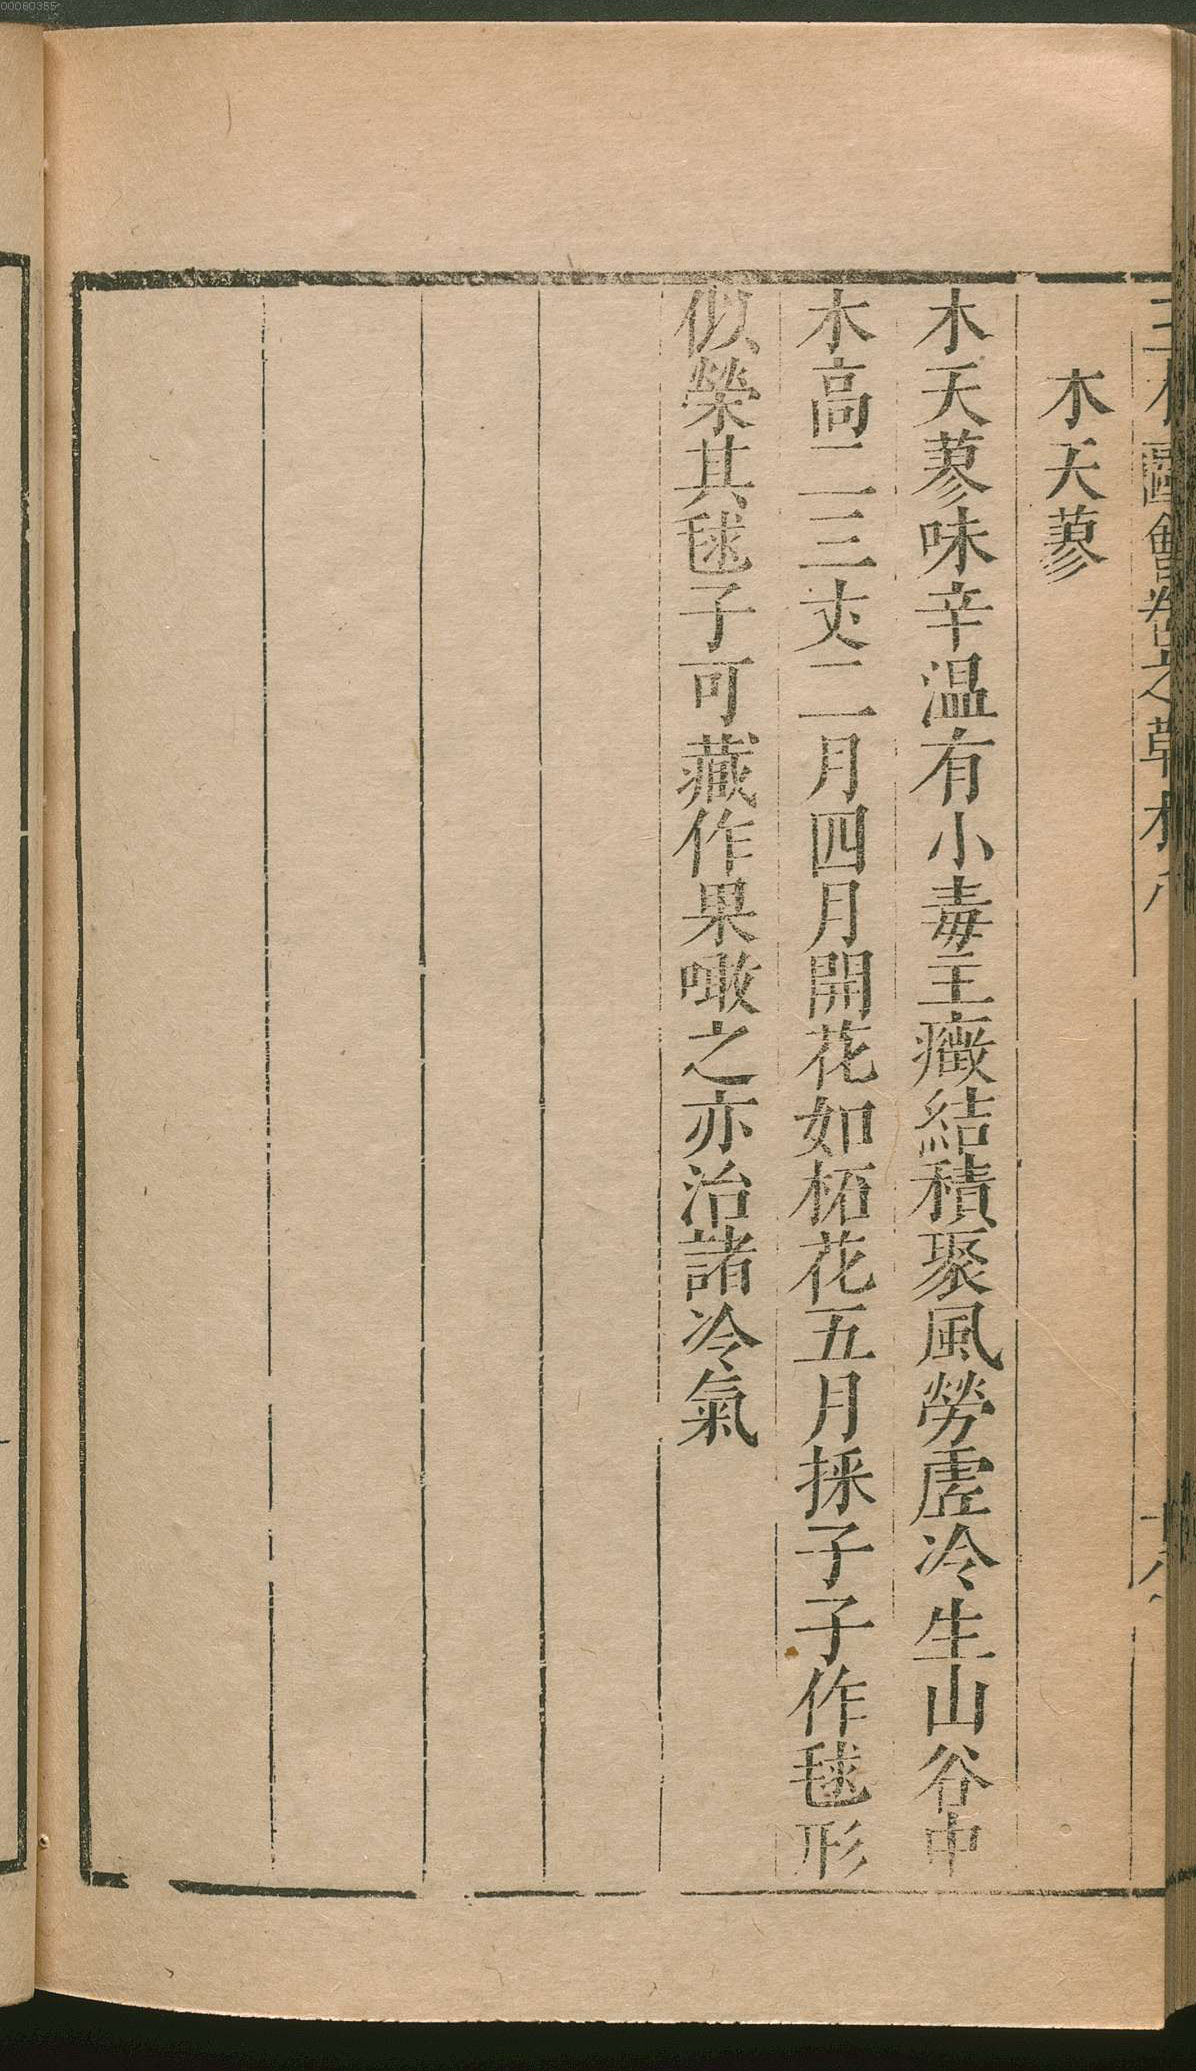 三才圖會卷之草木八
木天蓼
木天蓼味辛温有小毒主癥結積聚風勞虚冷生山谷中
木高二三丈二月四月開花如柘花五月採子子作毬形
似檾其毬子可藏作果噉之亦治諸冷氣
00060355